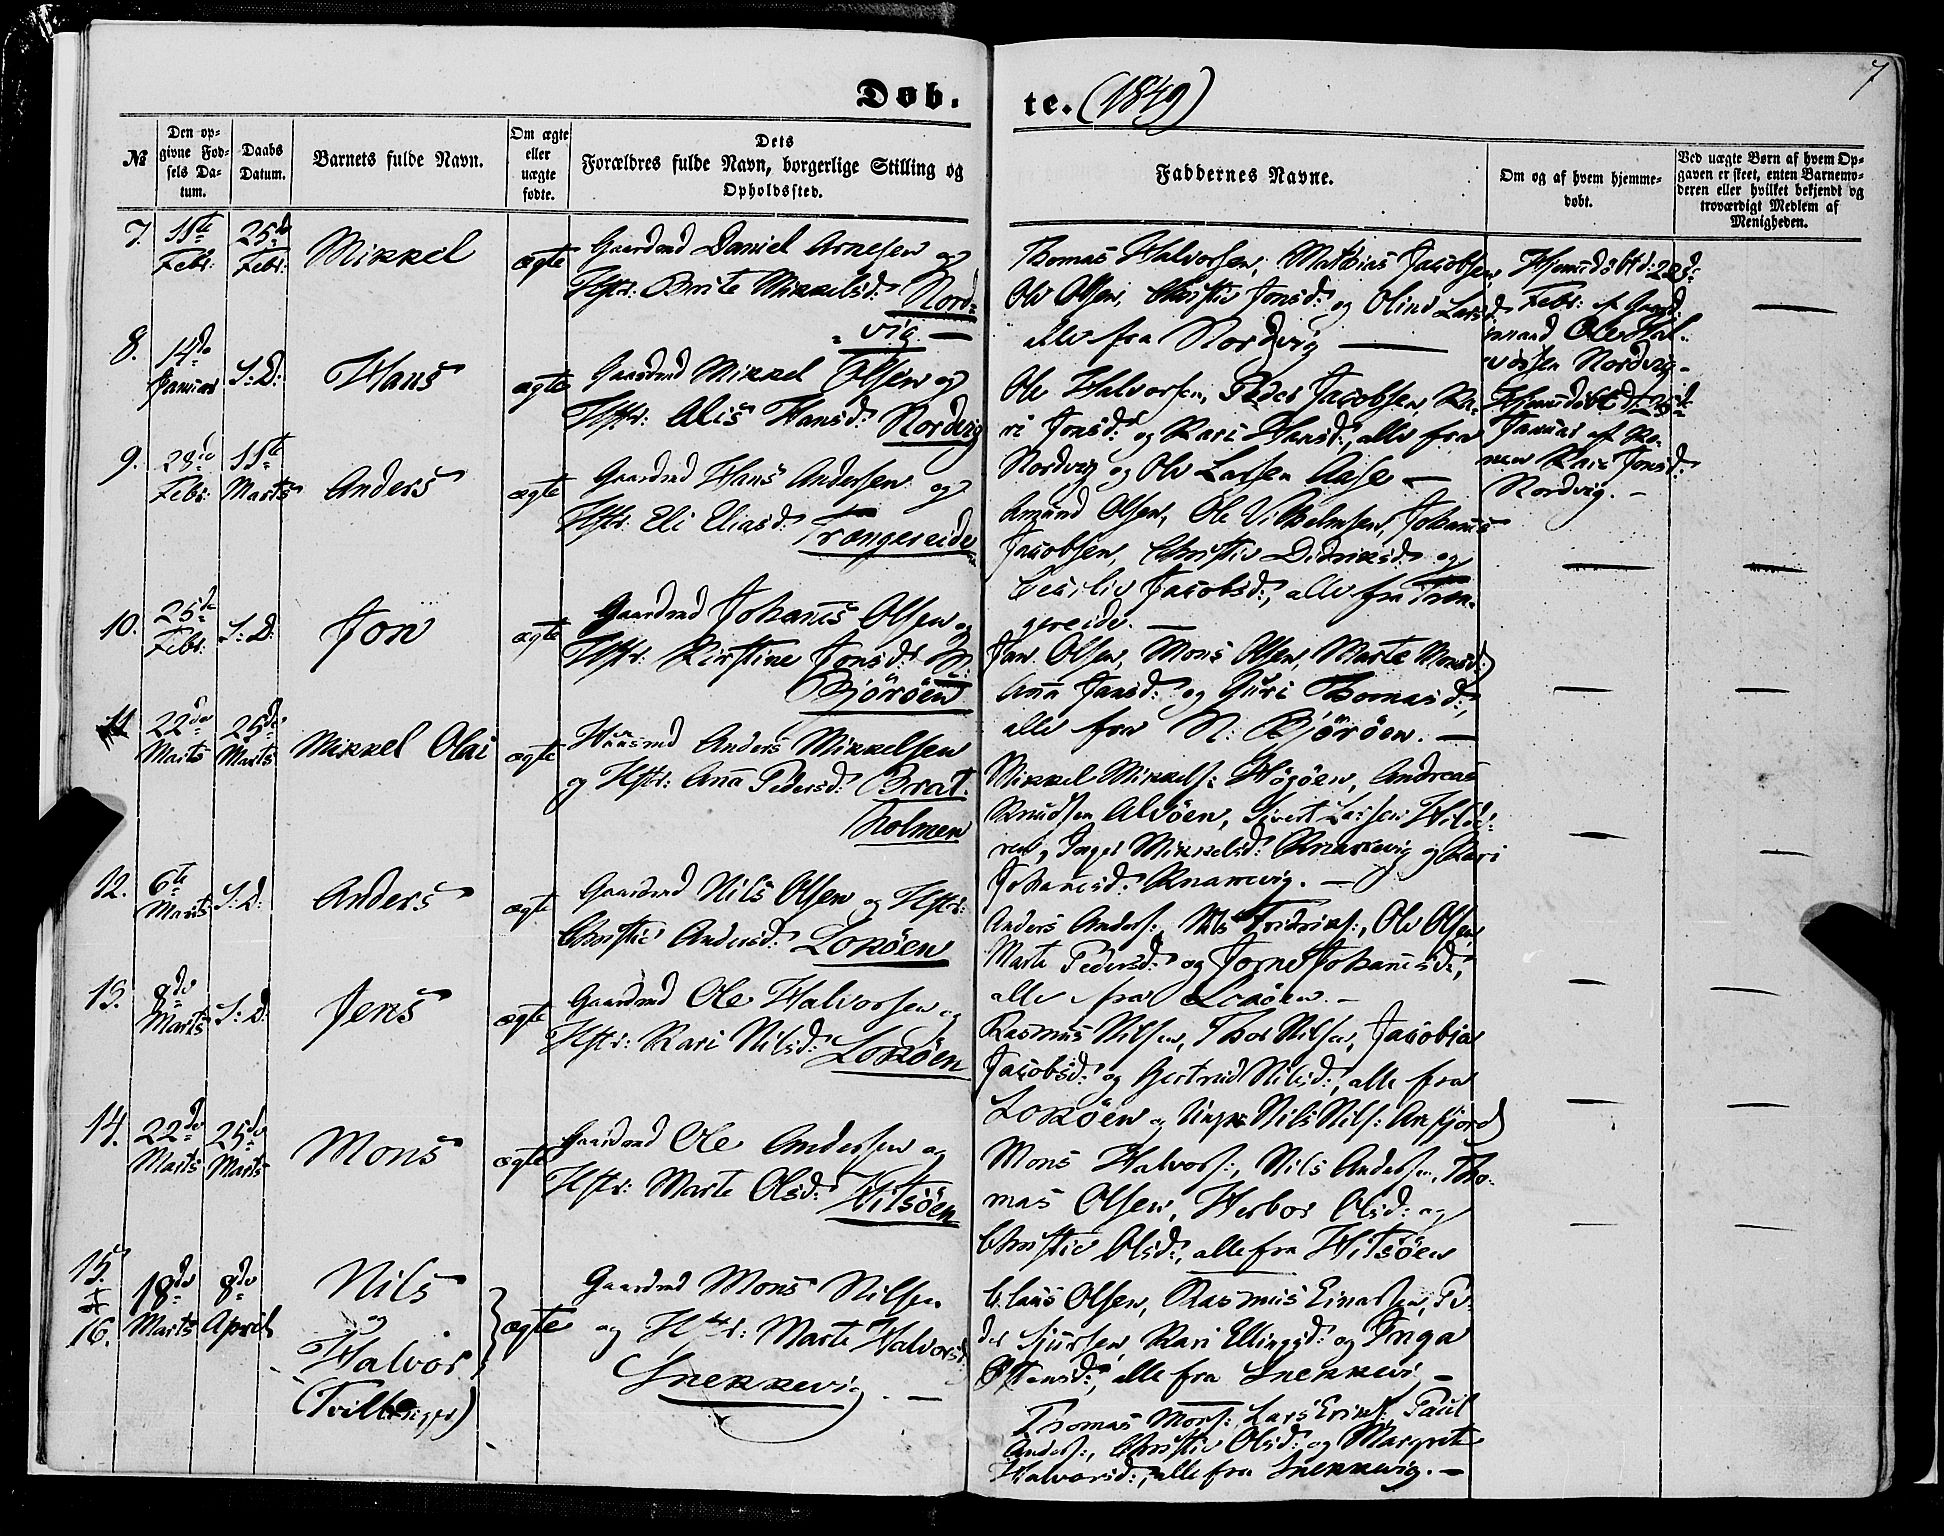 7
Døb. te. (1849)
№
Den op-
givne Fød-
sels Da-
tum.
Daabs
Datum.
Barnets fulde Navn.
Om ægte
eller
uægte
fødte.
Dets
Forældres fulde Navn, borgerlige Stilling og
Opholdssted.
Faddernes Navne.
Om og af hvem hjemme-
døbt.
Ved uægte Børn af hvem Op-
gaven er skeet, enten Barnemo-
deren eller hvilket bekjendt og
troværdigt Medlem af
Menigheden.
7.
11te
Febr:
25de
Febr:
Mikkel
ægte
Gaardmd Daniel Arnesen og
Hstr: Brite Mikkelsd: Nord-
vig. —
Thomas Halvorsen, Mathias Jacobsen,
Ole Olsen, Christie Jonsd: og Oline Larsd:
alle fra Nordvig —
Febr: af Gaard-
mand Ole Hal-
vorsen Nordvig. -
—
8.
14de
Januar
S: D:
Hans
ægte
Gaardmd Mikkel Olsen og
Hstr: Alis Hansd: Nordvig
Ole Halvorsen, Peder Jacobsen, Ka-
ri Jonsd: og Kari Hansd:, alle fra
Nordvig og Ole Larsen Aase —
Januar af Ko-
nen Kari Jonsd:
Nordvig. -
9.
Febr:
11te
Marts
Anders
ægte
Gaardmd Hans Andersen og
Hstr: Eli Eliasd: Trængereide
Amund Olsen, Ole Vilhelmsen, Johanes
Jacobsen, Christie Didriksd: og
Cecilie Jacobsd:, alle fra Træn-
gereide. —
10.
25de
Febr:
S: D:
Jon
ægte
Gaardmd Johanes Olsen og
Hstr: Kirstine Jonsd: N:
Björöen
Jan Olsen, Mons Olsen, Marte Monsd:
Anna Jansd: og Guri Thomasd:,
alle fra N: Björöen. —
11
22de
Marts
25de
Marts
Mikkel Olai
ægte
Huusmd Anders Mikkelsen
og Hstr: Anna Pedersd: Brat-
holmen
Mikkel Mikkels: Högöen, Andreas
Knudsen Alvöen, Sivert Larsen
Inger Mikkelsd: Knarrevig og Kari
Johanesd: Knarrevig. —
12.
6te
Marts
S: D:
Anders
ægte
Gaardmd Nils Olsen og Hstr:
Christie Andersd: Loköen
Anders Anders:, Nils Fridriks:, Ole Olsen
Marte Pedersd: og Johanesd:,
alle fra Loköen. —
13.
Marts
S: D:
Jens
ægte
Gaardmd Ole Halvorsen og
Hstr: Kari Nilsd: Loköen
Rasmus Nilsen, Thor Nilsen, Jacobia
Jacobsd: og Gertrud Nilsd:, alle fra
Loköen og Nils Nils:
14.
22de
Marts
25de
Marts
Mons
ægte
Gaardmd Ole Andersen og
Hstr: Marte Olsd: Hitsöen
Mons Halvors:, Nils Anders:, Tho-
mas Olsen, Herbor Olsd: og
Christie Olsd:, alle fra Hitsöen
15.
16.
18de
Marts
8de
April
Nils
og
Halvor
(Tvillinger)
ægte
Gaardmd Mons Nilsen
og Hstr: Marte Halvorsd:
Snekkevig. —
Claus Olsen, Rasmus Einarsen, Pe-
der Sjursen, Kari Ellingsd: og Inga
alle fra Snekkevi —
Thomas Mons:, Lars Eriks:, Paul
Anders:, Christie Olsd: og Margrete
Halvorsd:, alle fra Snekkevig. —